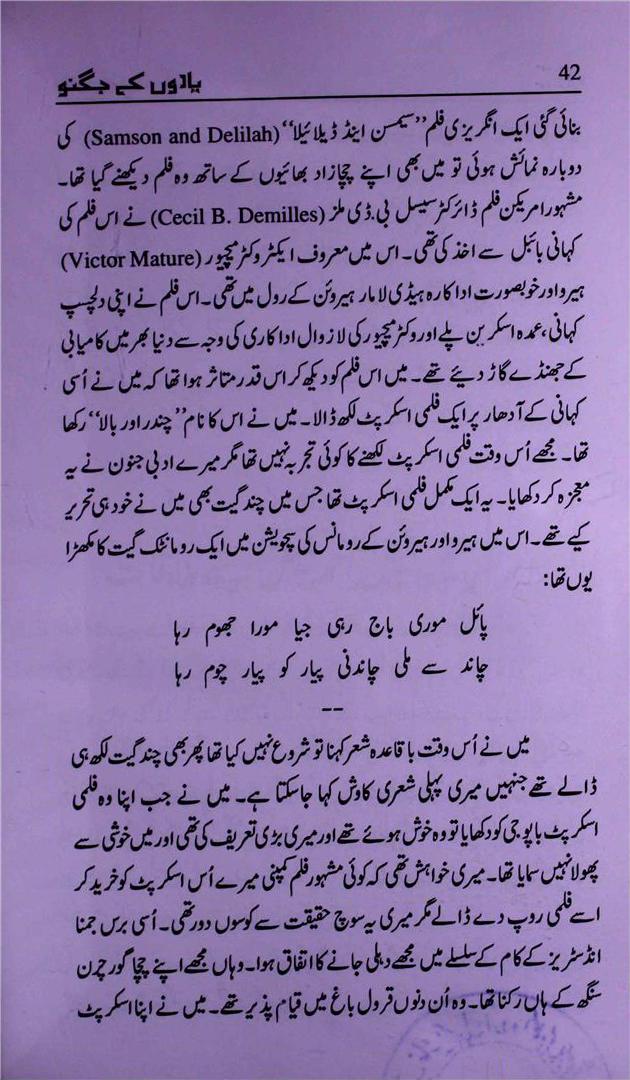 42
یادوں کے جگنو
بنائی گئی ایک انگریزی فلم ”سیمسن اینڈ ڈیلائیلا“ (Samson and Delilah) کی
دوبارہ نمائش ہوئی تو میں بھی اپنے چچازاد بھائیوں کے ساتھ وہ فلم دیکھنے گیا تھا۔
مشہور امریکن فلم ڈائرکٹر سیسل بی۔ڈی ملز (Cecil B. Demilles) نے اس فلم کی
کہانی بائبل سے اخذ کی تھی۔ اس میں معروف ایکٹر وکٹر میچیور (Victor Mature)
ہیرو اور خوبصورت اداکارہ ہیڈی لامار ہیروئن کے رول میں تھی۔ اس فلم نے اپنی دلچسپ
کہانی، عمدہ اسکرین پلے اور وکٹر میچیور کی لازوال اداکاری کی وجہ سے دنیا بھر میں کامیابی
کے جھنڈے گاڑ دیئے تھے۔ میں اس فلم کو دیکھ کر اس قدر متاثر ہوا تھا کہ میں نے اُسی
کہانی کے آدھار پر ایک فلمی اسکرپٹ لکھ ڈالا۔ میں نے اس کا نام ”چندر اور بالا“ رکھا
تھا۔ مجھے اُس وقت فلمی اسکرپٹ لکھنے کا کوئی تجربہ نہیں تھا مگر میرے ادبی جنون نے یہ
معجزہ کر دکھایا۔ یہ ایک مکمل فلمی اسکرپٹ تھا جس میں چند گیت بھی میں نے خود ہی تحریر
کیے تھے۔ اس میں ہیرو اور ہیروئن کے رومانس کی سچویشن میں ایک رومانٹک گیت کا مکھڑا
یوں تھا:
پائل موری باج رہی جیا مورا جھوم رہا
چاند سے ملی چاندنی پیار کو پیار چوم رہا
--
میں نے اُس وقت باقاعدہ شعر کہنا تو شروع نہیں کیا تھا پھر بھی چند گیت لکھ ہی
ڈالے تھے جنہیں میری پہلی شعری کاوش کہا جاسکتا ہے۔ میں نے جب اپنا وہ فلمی
اسکرپٹ باپو جی کو دکھایا تو وہ خوش ہوئے تھے اور میری بڑی تعریف کی تھی اور میں خوشی سے
پھولا نہیں سمایا تھا۔ میری خواہش تھی کہ کوئی مشہور فلم کمپنی میرے اُس اسکرپٹ کو خرید کر
اسے فلمی روپ دے ڈالے مگر میری یہ سوچ حقیقت سے کوسوں دور تھی۔ اُسی برس جمنا
انڈسٹریز کے کام کے سلسلے میں مجھے دہلی جانے کا اتفاق ہوا۔ وہاں مجھے اپنے چچا گورچرن
سنگھ کے ہاں رکنا تھا۔ وہ اُن دنوں قرول باغ میں قیام پذیر تھے۔ میں نے اپنا اسکرپٹ